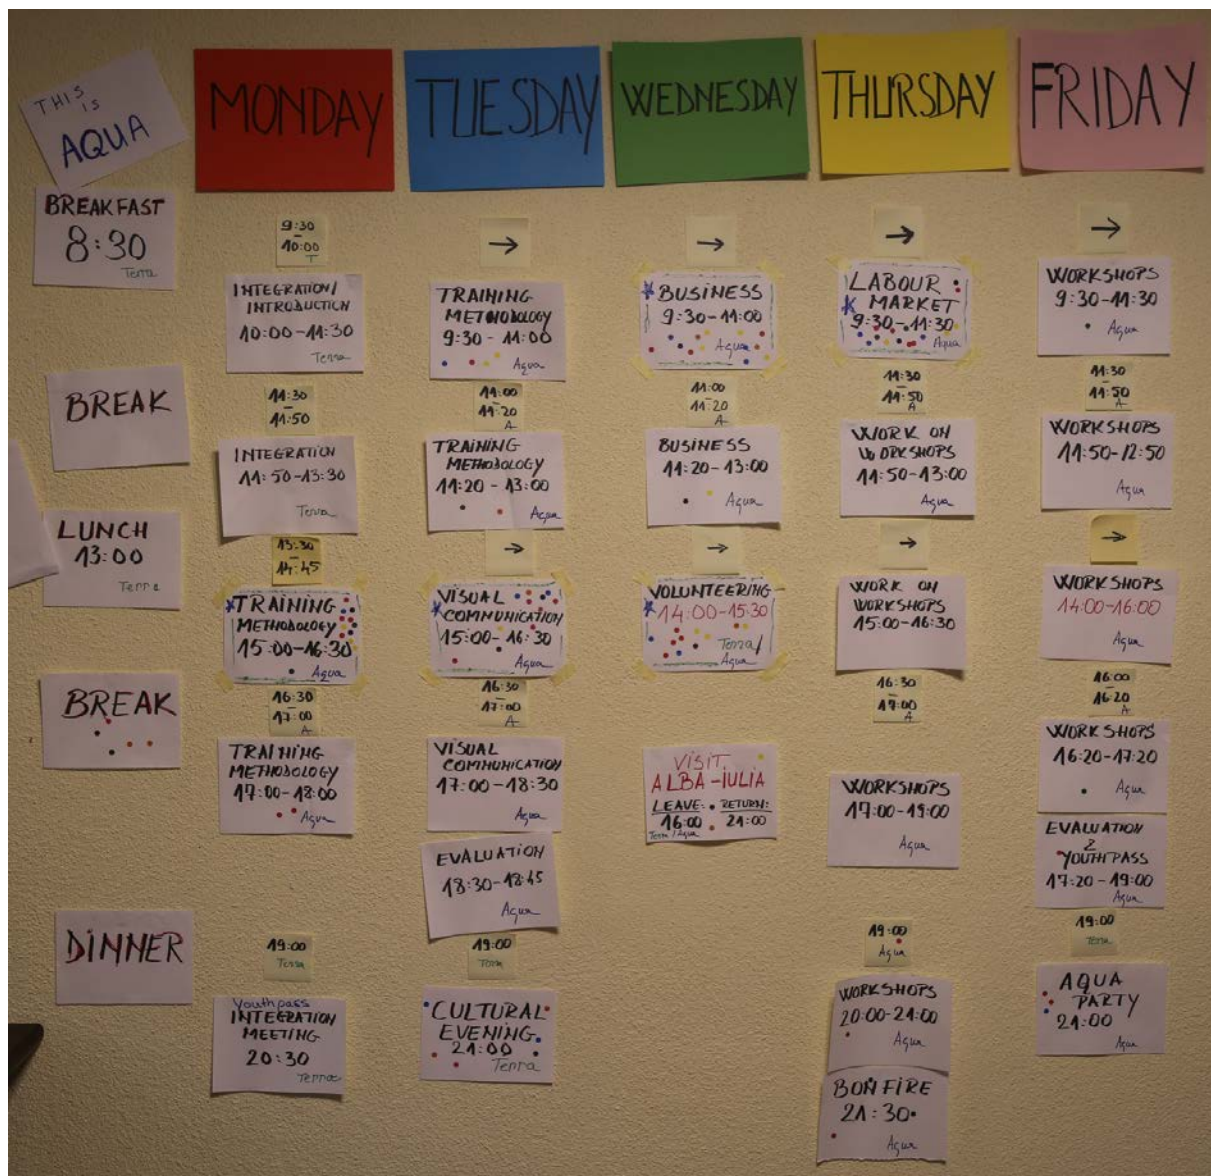 THIS
IS
AQUA
BREAKFAST
8:30
Terra
BREAK
LUNCH
13:00
Terra
BREAK
DINNER
MONDAY
9:30
–
10:00
T
INTEGRATION/
INTRODUCTION
10:00-11:30
Terra
11:30
–
11:50
INTEGRATION
11:50-13:30
Terra
13:30
–
14:45
TRAINING
METHODOLOGY
15:00-16:30
Aqua
16:30
–
17:00
A
TRAINING
METHODOLOGY
17:00-18:00
Aqua
19:00
Terra
Youthpass
INTEGRATION
MEETING
20:30
Terra
TUESDAY
→
TRAINING
METHODOLOGY
9:30-11:00
Aqua
11:00
–
11:20
A
TRAINING
METHODOLOGY
11:20-13:00
Aqua
→
VISUAL
COMMUNICATION
15:00-16:30
Aqua
16:30
–
17:00
A
VISUAL
COMMUNICATION
17:00-18:30
Aqua
EVALUATION
18:30-18:45
Aqua
19:00
Terra
CULTURAL
EVENING
21:00
Terra
WEDNESDAY
→
BUSINESS
9:30-11:00
Aqua
11:00
–
11:20
A
BUSINESS
11:20-13:00
Aqua
→
VOLUNTEERING
14:00-15:30
Terra/
Aqua
VISIT
ALBA-IULIA
LEAVE: RETURN:
16:00 21:00
Terra/Aqua
THURSDAY
→
LABOUR
MARKET
9:30-11:30
Aqua
11:30
–
11:50
A
WORK ON
WORKSHOPS
11:50-13:00
Aqua
→
WORK ON
WORKSHOPS
15:00-16:30
16:30
–
17:00
A
WORKSHOPS
17:00-19:00
Aqua
19:00
Aqua
WORKSHOPS
20:00-21:00
Aqua
BONFIRE
21:30
Aqua
FRIDAY
→
WORKSHOPS
9:30-11:30
Aqua
11:30
–
11:50
A
WORKSHOPS
11:50-12:50
Aqua
→
WORKSHOPS
14:00-16:00
Aqua
16:00
–
16:20
A
WORKSHOPS
16:20-17:20
Aqua
EVALUATION
&
YOUTHPASS
17:20-19:00
Aqua
19:00
Terra
AQUA
PARTY
21:00
Aqua